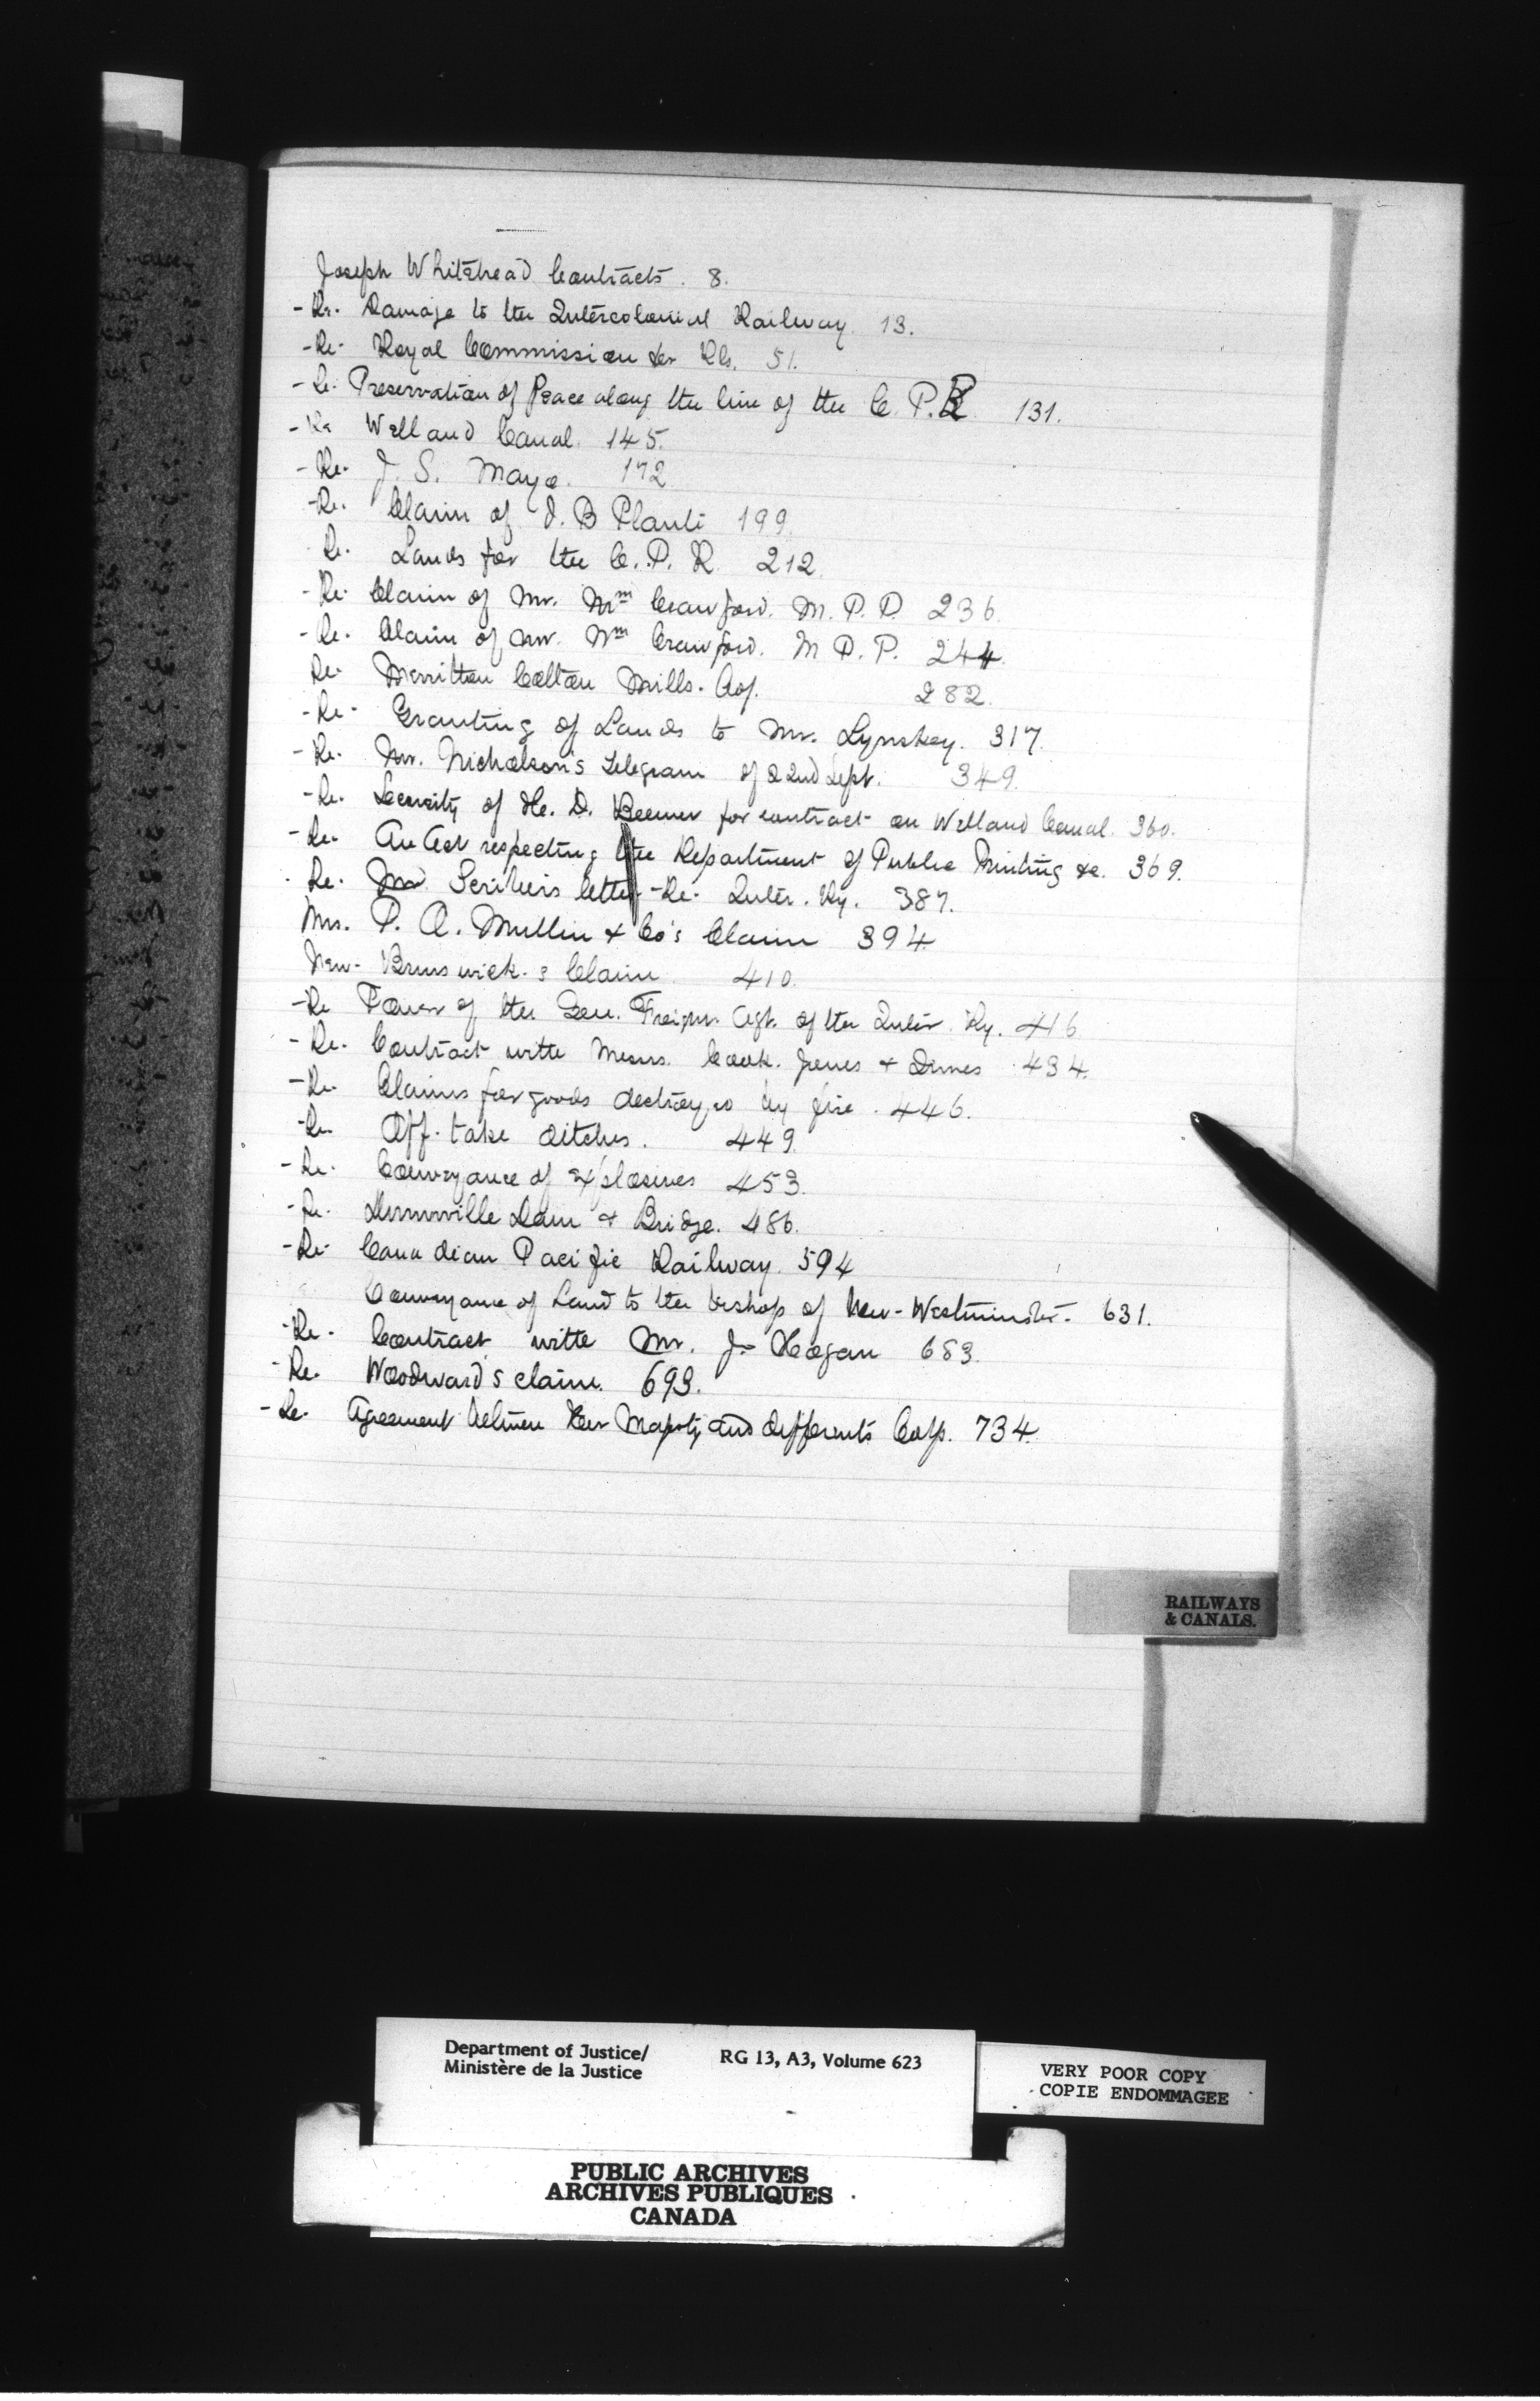 Joseph Whitehead Contracts. 8.
- Re. Damage to the Intercolonial Railway. 13.
- Re. Royal Commission 51.
- Re. Preservation of Peace along the line of the C. P. R. 131.
- Re Welland Canal. 145.
- Re. J. S. Mayo. 172
- Re. Claim of J. B Planti 199.
Re. Lands for the C. P. R. 212.
- Re. Claim of Mr. Wm Crawford. M. P. P. 236.
- Re. Claim of Mr. Wm Crawford. M P. P. 244.
Re. Merritton Cotton Mills. 282.
- Re. Granting of Lands to Mr. Lynskey. 317.
- Re. Mr. Nicholson's telegram of 22nd Sept. 349.
- Re. Security of H. D. Beemer for contract on Welland Canal. 360.
- Re. An Act respecting the Department of Public Printing &c. 369.
Re. Mr Scriber's letter - Re. Inter. Ry. 387.
P. A. Mullin & Co's Claim 394.
New-Brunswick's Claim 410.
- Re Power of the Gen. Freight Agt. of the Inter. Ry. 416
- Re. Contract with Messrs. Cook. Jones & 434.
- Re. Claims for goods destroyed by fire. 446.
- Re. Off-take ditches. 449.
- Re. Conveyance of explosives 453.
- Re. Dunnville Dam & Bridge. 486.
- Re. Canadian Pacific Railway. 594
Conveyance of Land to the bishop of New-Westminster. 631.
- Re. Contract with Mr. J. Hogan 683.
- Re. Woodward's claim. 693.
- Re. Agreement between Her Majesty and differents 734.
RAILWAYS
& CANALS.
Department of Justice/ RG 13, A3, Volume 623
Ministère de la Justice
VERY POOR COPY
COPIE ENDOMMAGEE
PUBLIC ARCHIVES
ARCHIVES PUBLIQUES
CANADA